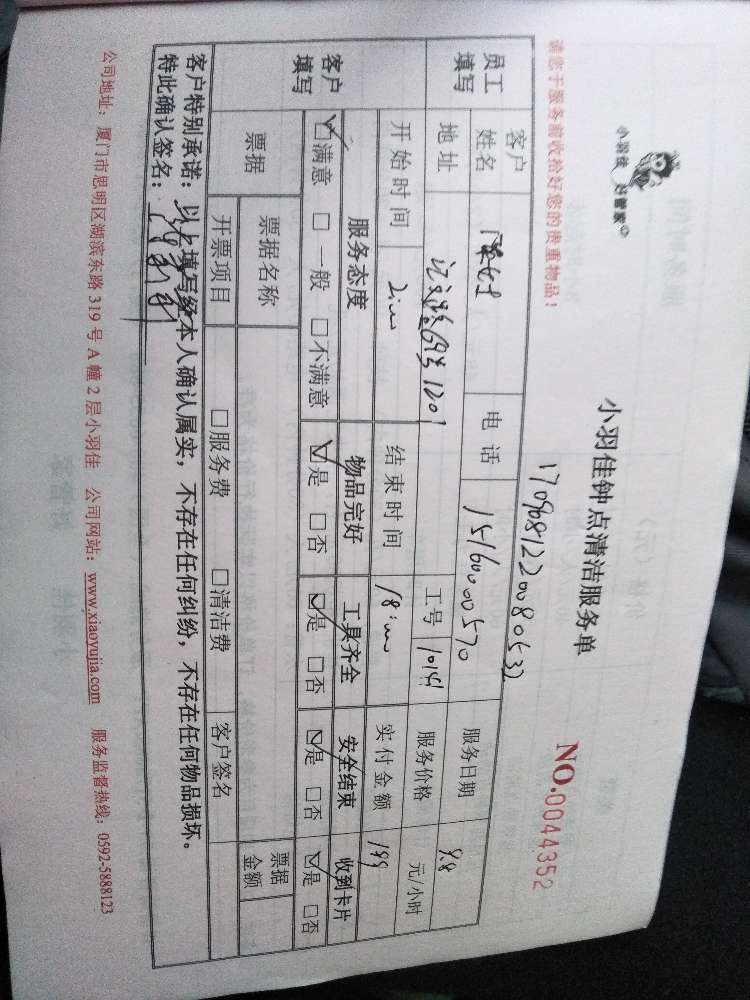 小羽佳 好管家
小羽佳钟点清洁服务单
请您于服务前收拾好您的贵重物品！
NO.0044352
员工填写
客户姓名
电话 15160000570
服务日期 9.8
地址
1201
工号
服务价格 元/小时
开始时间
结束时间
实付金额 199
客户填写
服务态度 物品完好 工具齐全 安全结束 收到卡片
☑满意 □一般 □不满意 ☑是 □否 ☑是 □否 ☑是 □否 ☑是 □否
票据 票据名称 票据金额
开票项目 □服务费 □清洁费 客户签名
客户特别承诺：以上填写经本人确认属实，不存在任何纠纷，不存在任何物品损坏。
特此确认签名：
公司地址：厦门市思明区湖滨东路 319 号 A 幢 2 层小羽佳 公司网站：www.xiaoyujia.com 服务监督热线：0592-5888123